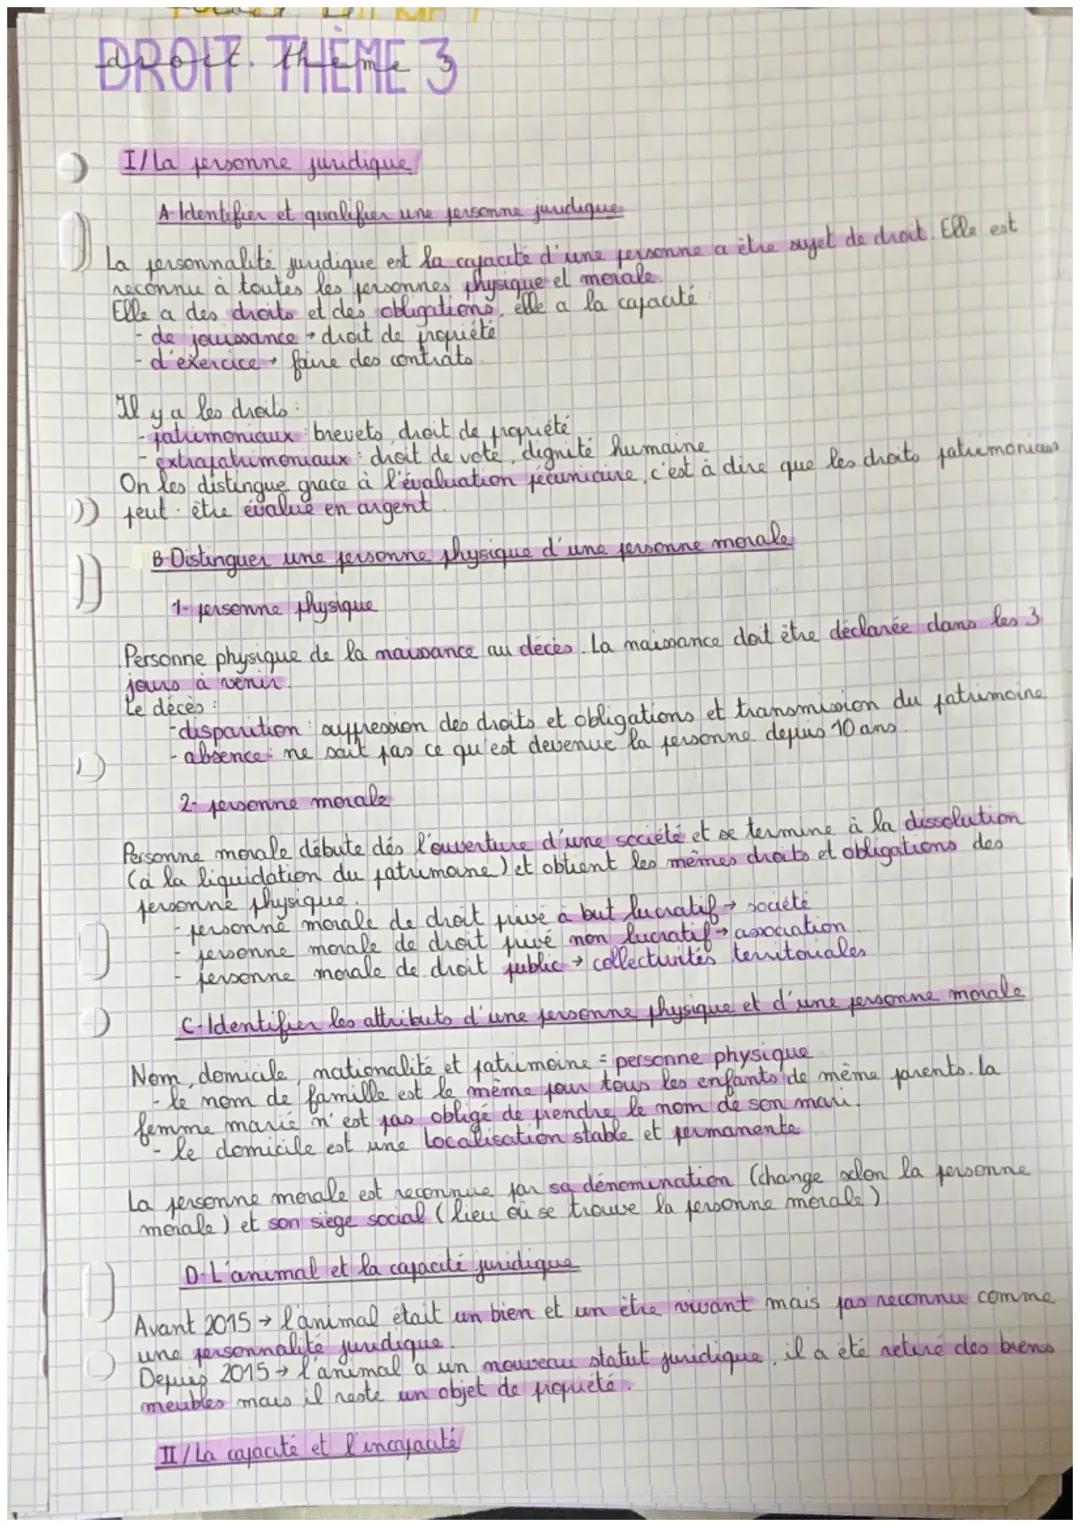 DROIT THÈME 3
droit. thème 3
I/ La personne juridique
A- Identifier et qualifier une personne juridique
La personnalité juridique est la capacité d'une personne a être sujet de droit. Elle est
reconnu à toutes les personnes physique et morale.
Elle a des droits et des obligations, elle a la capacité
- de jouissance → droit de propriété
- d'exercice → faire des contrats.
Il y a les droits :
- patrimoniaux : brevets, droit de propriété
- extrapatrimoniaux : droit de vote, dignité humaine
On les distingue grace à l'évaluation pécuniaire, c'est à dire que les droits patrimoniaux
peut-être évalué en argent.
B- Distinguer une personne physique d'une personne morale
1- personne physique
Personne physique de la naissance au décès. La naissance doit être déclarée dans les 3
jours à venir.
Le décès :
- disparition : suppression des droits et obligations et transmission du patrimoine
- absence : ne sait pas ce qu'est devenue la personne depuis 10 ans.
2- personne morale
Personne morale débute dés l'ouverture d'une société et se termine à la dissolution
(à la liquidation du patrimoine) et obtient les mêmes droits et obligations des
personne physique.
- personne morale de droit privé à but lucratif → société
- personne morale de droit privé non lucratif → association
- personne morale de droit public → collectivités territoriales
C- Identifier les attributs d'une personne physique et d'une personne morale
Nom, domicile, nationalité et patrimoine = personne physique
- le nom de famille est le même pour tous les enfants de même parents. la
femme marié n'est pas obligé de prendre le nom de son mari.
- le domicile est une localisation stable et permanente
La personne morale est reconnue par sa dénomination (change selon la personne
morale) et son siège social (lieu où se trouve la personne morale)
D- L'animal et la capacité juridique
Avant 2015 → l'animal était un bien et un être vivant mais pas reconnu comme
une personnalité juridique.
Depuis 2015 → l'animal a un nouveau statut juridique, il a été retiré des biens
meubles mais il reste un objet de propriété.
II/ La capacité et l'incapacité